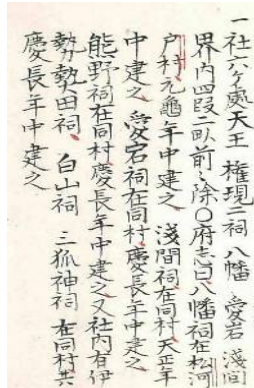 一社六ケ處天王 權現二祠 八幡 愛宕 淺間
界内四段二畝前々除○府志曰八幡祠在松河
戸村元龜年中建之 淺間祠在同村天正年
中建之 愛宕祠在同村慶長年中建之
熊野祠在同村慶長年中建之又社内有伊
勢熱田祠 白山祠 三狐神祠 在同村共
慶長年中建之